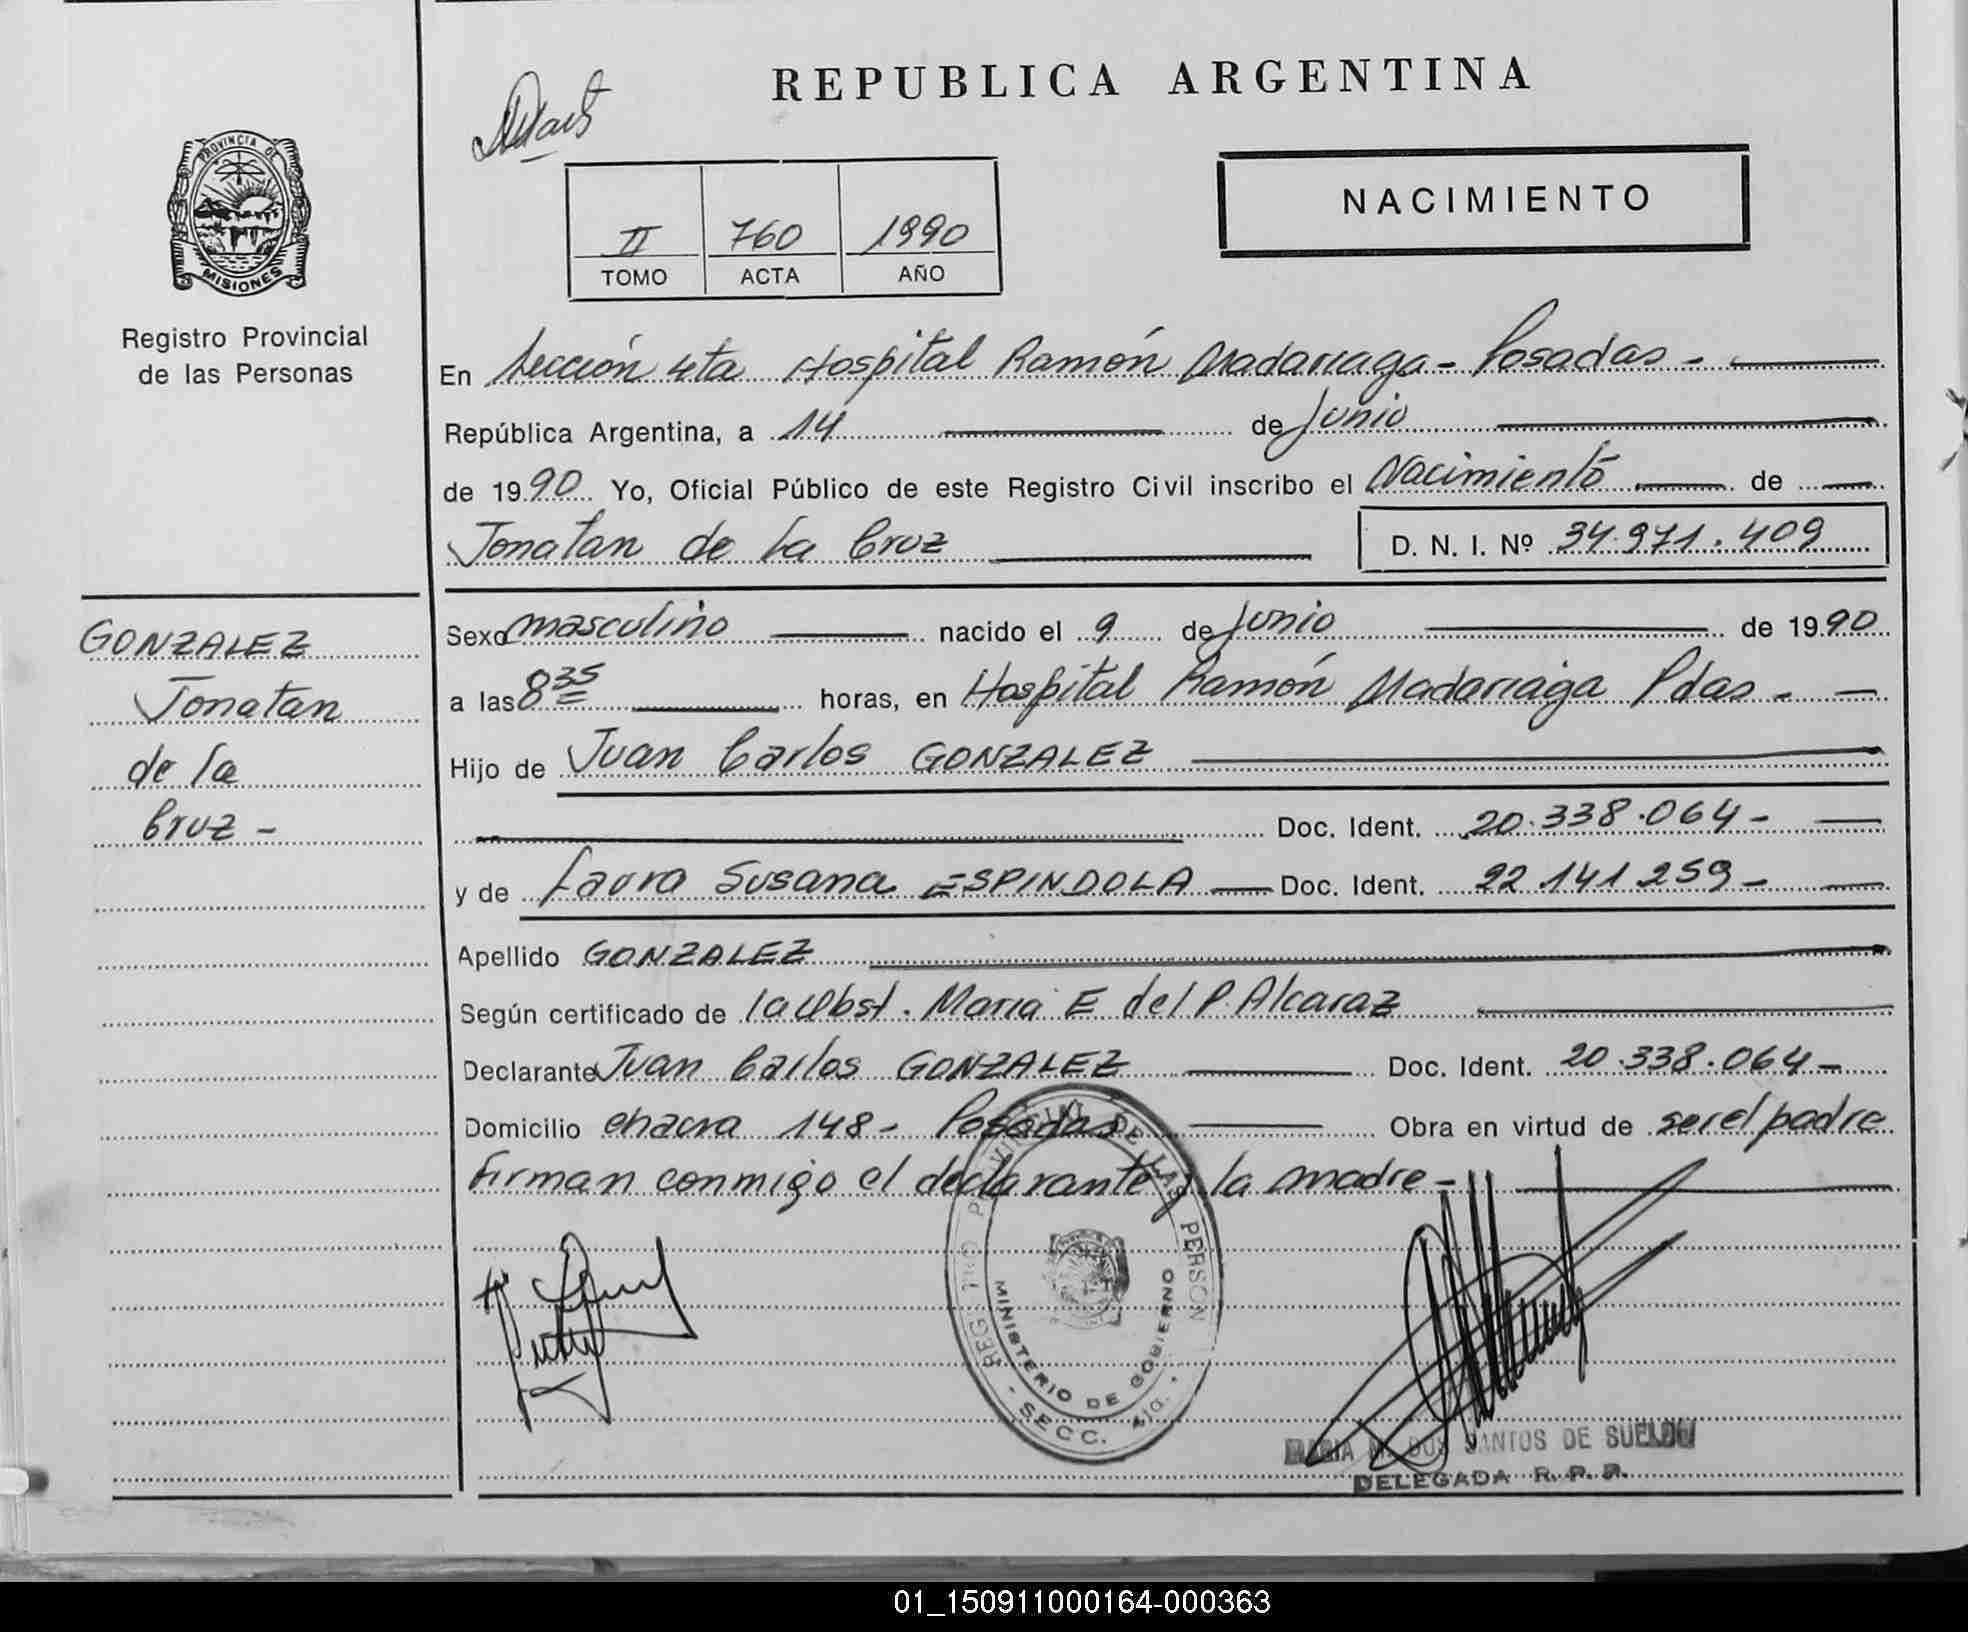 REPUBLICA ARGENTINA
PROVINCIA DE MISIONES
Registro Provincial
de las Personas
II 760 1990
TOMO ACTA AÑO
NACIMIENTO
En Sección 4ta Hospital Ramón Madariaga - Posadas -
República Argentina, a 14 de Junio
de 1990 Yo, Oficial Público de este Registro Civil inscribo el Nacimiento de
Jonatan de la Cruz D. N. I. Nº 34.971.409
GONZALEZ
Jonatan
de la
Cruz -
Sexo masculino nacido el 9 de Junio de 1990
a las 8 35 horas, en Hospital Ramón Madariaga Pdas -
Hijo de Juan Carlos GONZALEZ
Doc. Ident. 20.338.064 -
y de Laura Susana ESPINDOLA Doc. Ident. 22.141.259 -
Apellido GONZALEZ
Según certificado de la Obst. Maria E del P. Alcaraz
Declarante Juan Carlos GONZALEZ Doc. Ident. 20.338.064 -
Domicilio chacra 148 - Posadas Obra en virtud de ser el padre
Firman conmigo el declarante y la madre -
REGISTRO PROVINCIAL DE LAS PERSONAS
MINISTERIO DE GOBIERNO
- SECC. 4ta. -
MARIA DOS SANTOS DE SUELDO
DELEGADA R. P. P.
01_150911000164-000363